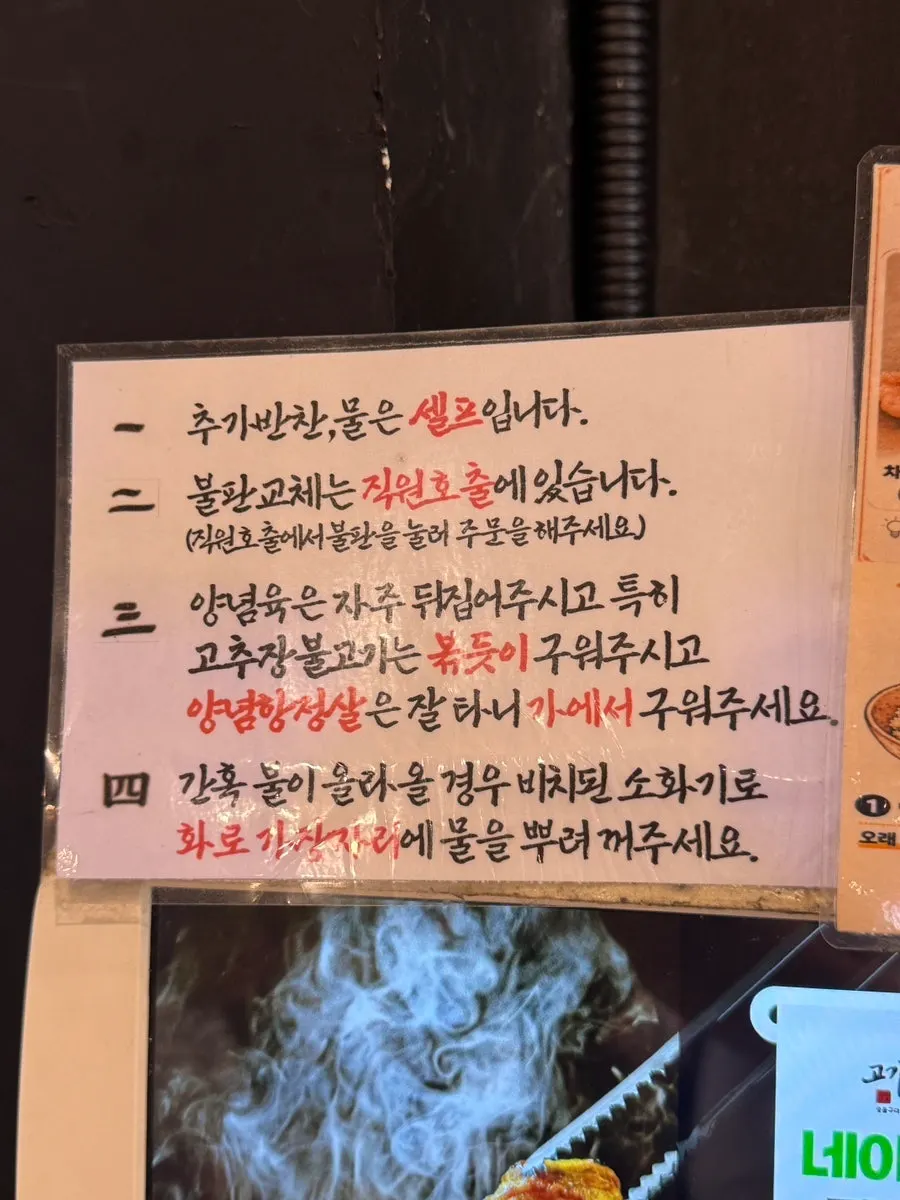 一 추가반찬,물은 셀프입니다.
二 불판교체는 직원호출에 있습니다.
(직원호출에서 불판을 눌러 주문을 해주세요)
三 양념육은 자주 뒤집어주시고 특히
고추장불고기는 볶듯이 구워주시고
양념항정살은 잘 타니 가에서 구워주세요.
四 간혹 불이 올라올 경우 비치된 소화기로
화로가장자리에 물을 뿌려 꺼주세요.
차
1
오래
고기
네이